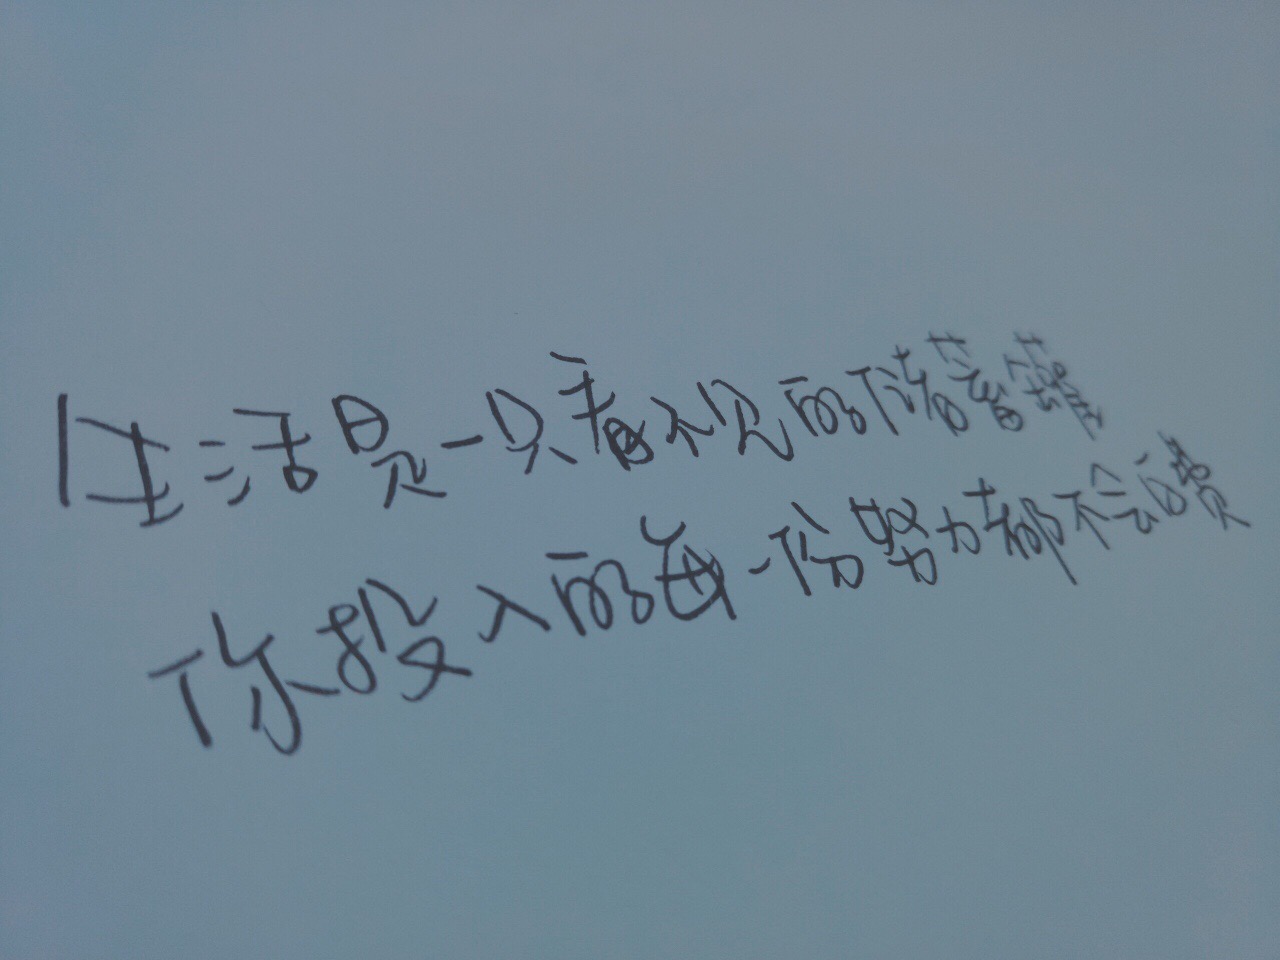 生活是一只看不见的储蓄罐
你投入的每一份努力都不会白费